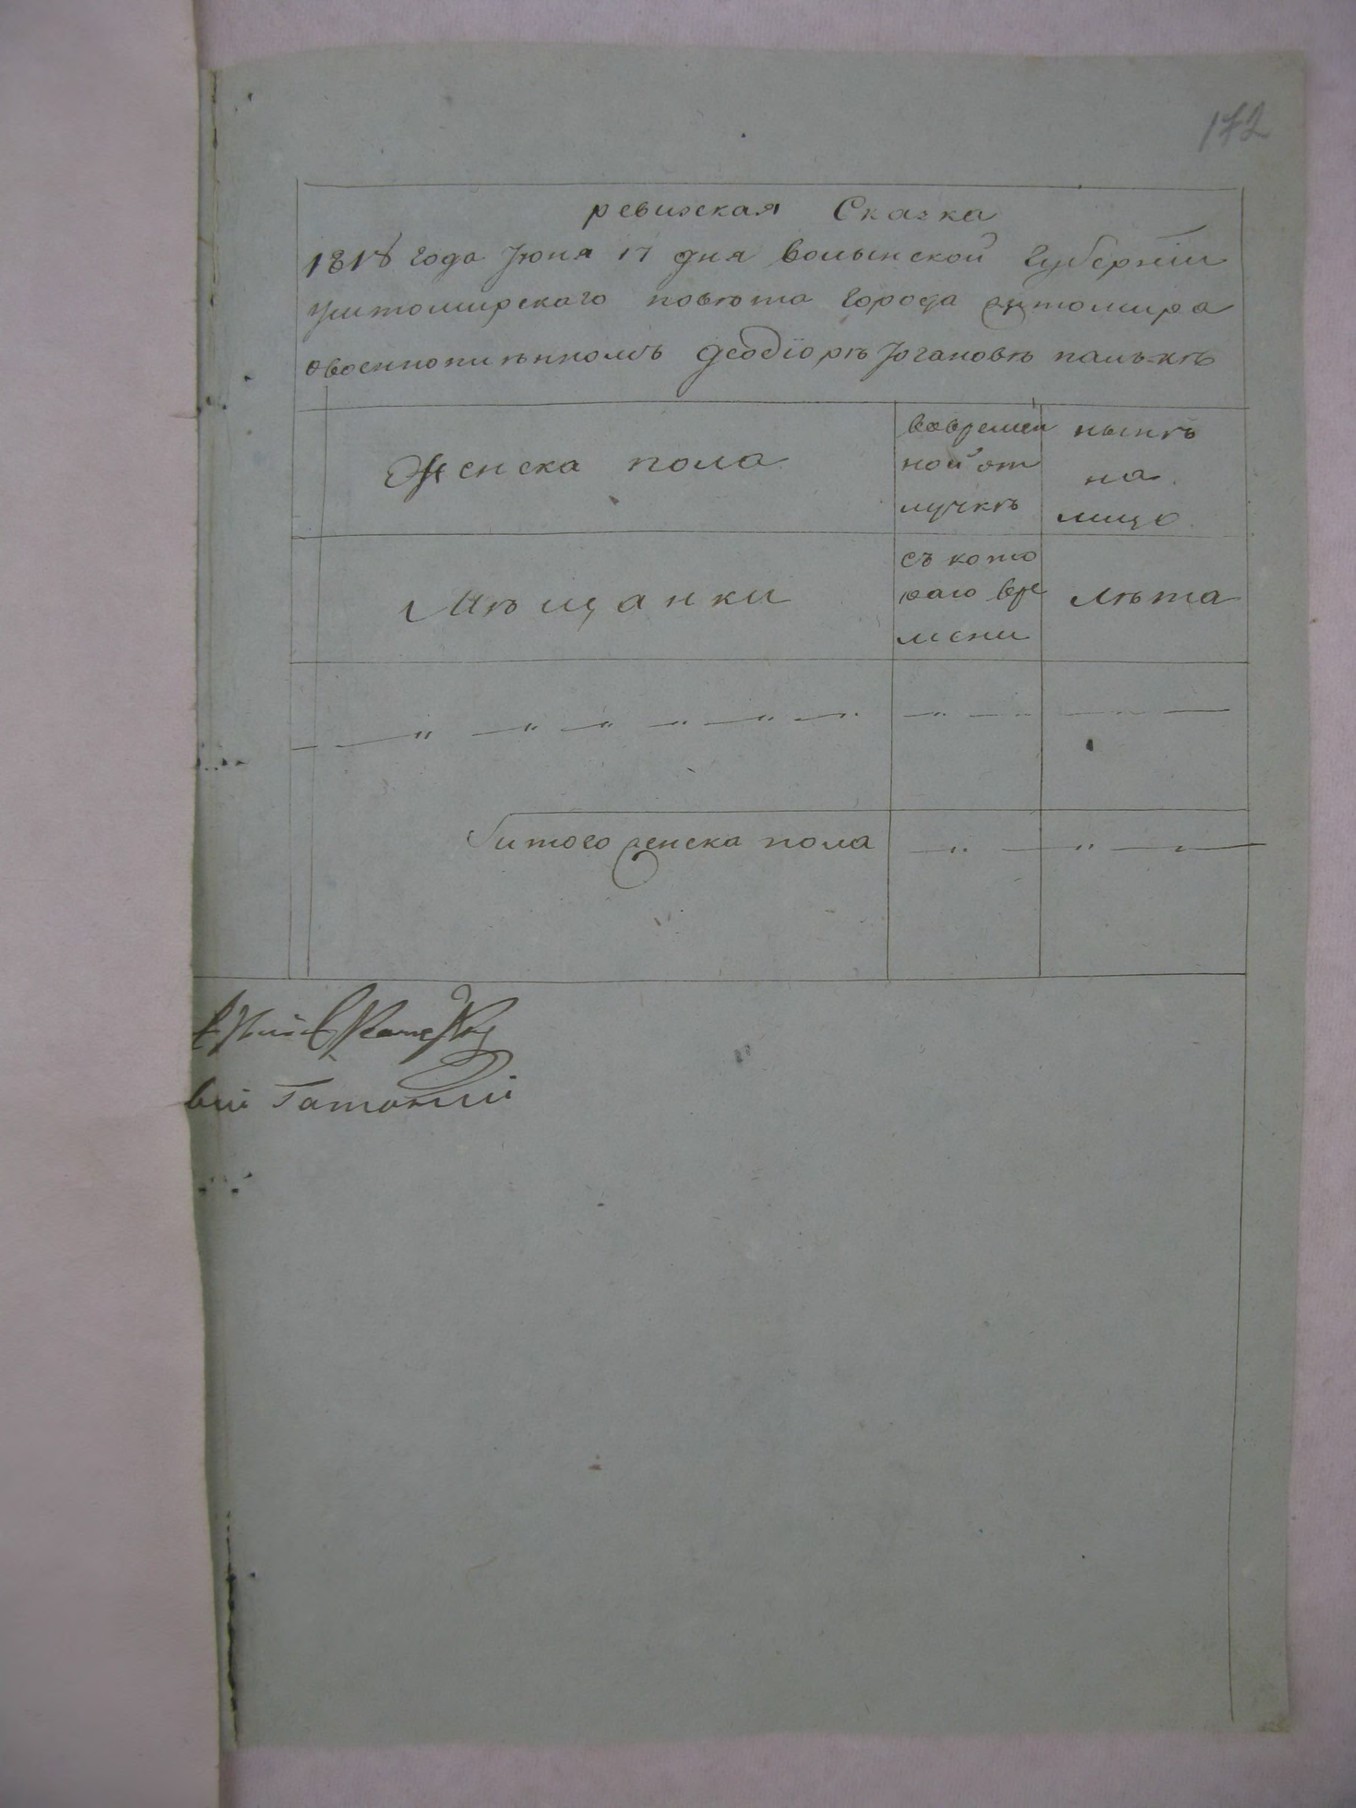 172
ревизская Сказка
1818 года Июня 17 дня волынской Губернии
житомирского повѣта города житомира
овоеннопленномъ Феодіорѣ Іогановѣ пальке
Женска пола
вовремен
ной от
лучкѣ
нынѣ
на
лицо
Мѣщанки
съ кото
раго вре
мени
лѣта
итого женска пола